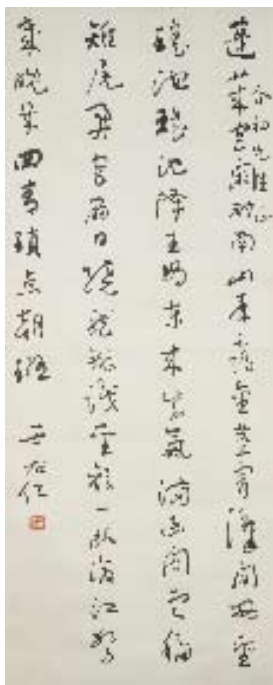 蓬萊宮闕對南山承露金莖霄漢間西望
瑤池瑤池降王母東來紫氣滿函關雲移
雉尾開宮扇日繞龍鱗識聖顏一臥滄江驚
歲晚幾回青瑣點朝班 于右任